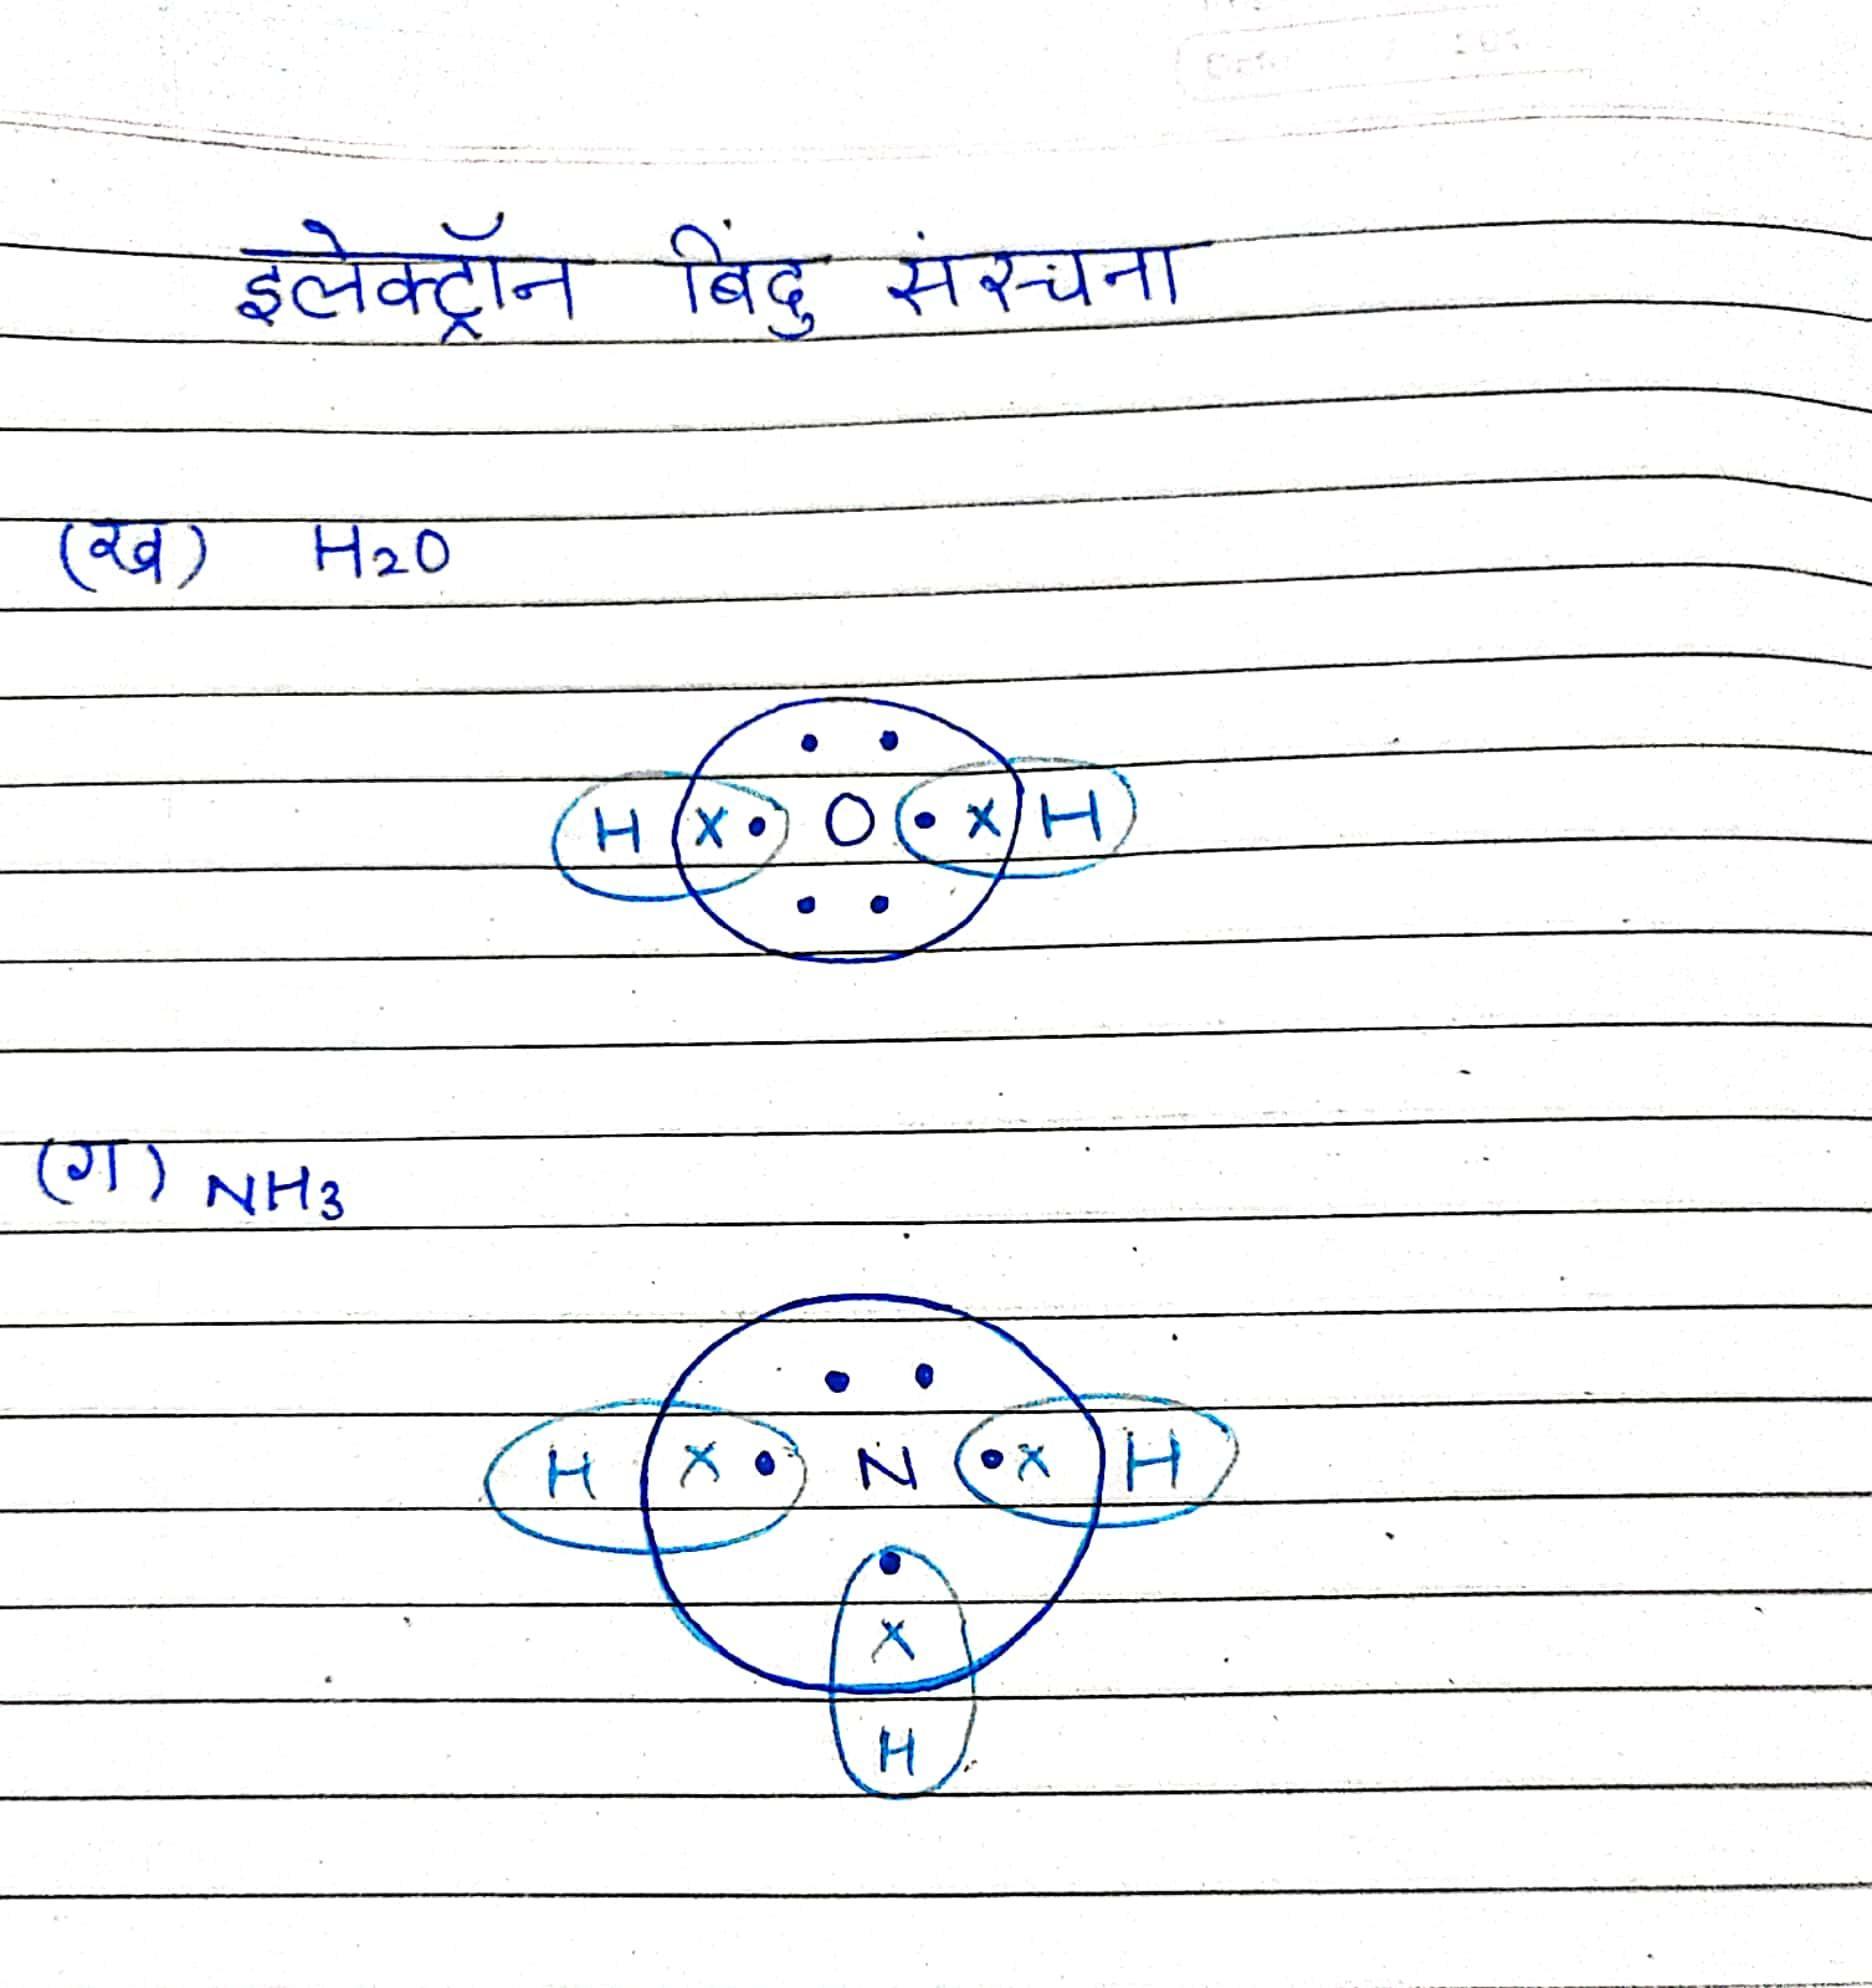 इलेक्ट्रॉन बिंदु संरचना
(ख) H₂O
H X • O • X H
(ग) NH₃
H X • N • X H
X
H